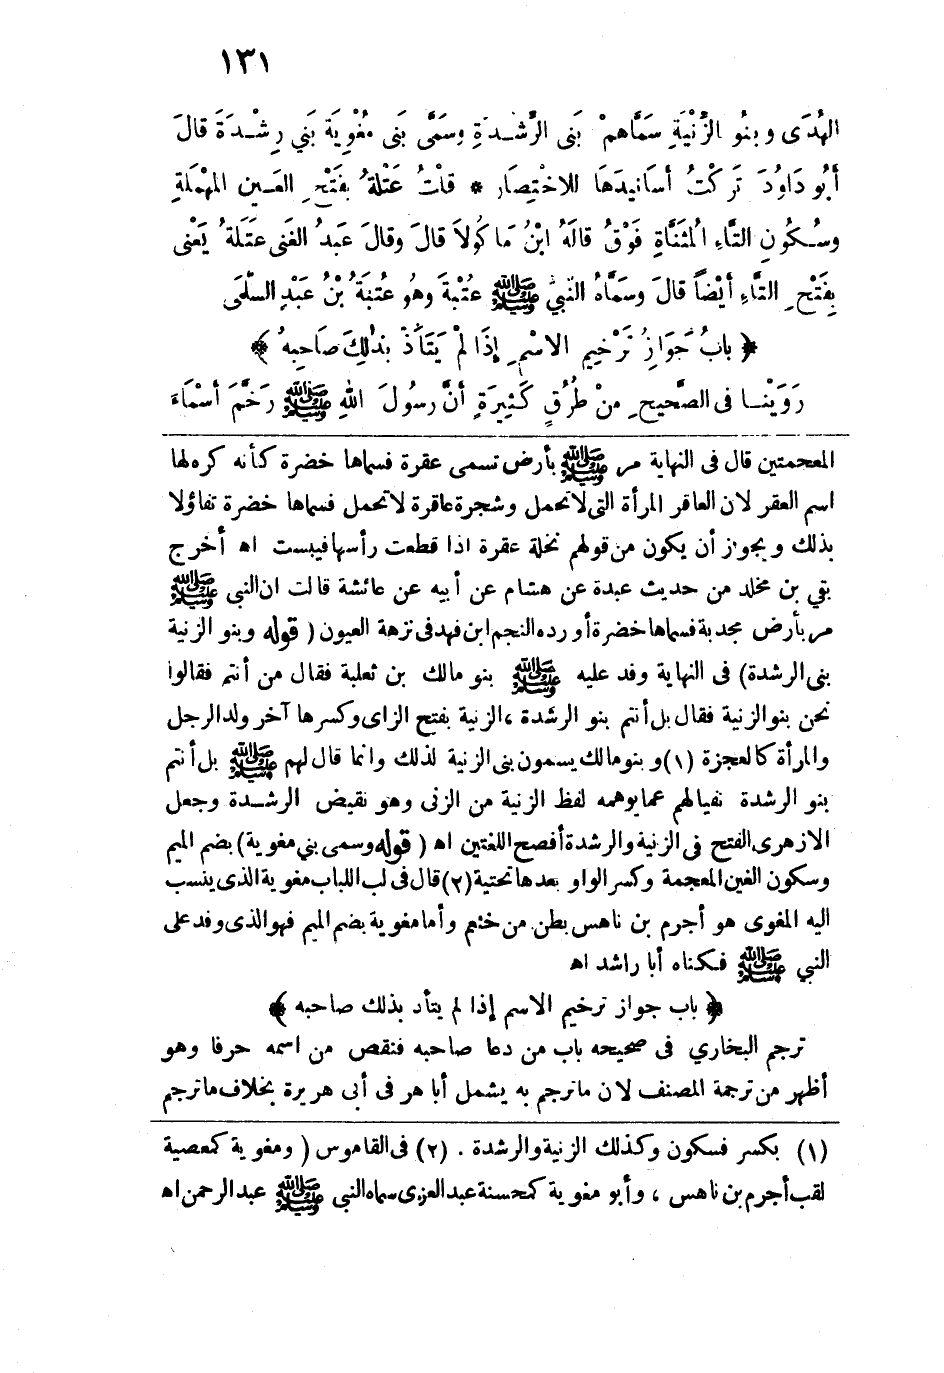 ١٣١
الهُدَى وبنُو الزَّنْيَةِ سَمَّاهمْ بَنى الرَّشْدَةِ وسَمَّى بَنى مُغْوِيَةَ بَني رِشْدَةَ قالَ
أَبُو دَاوُدَ تَرَكْتُ أسَانِيدَهَا للاخْتِصَارِ * قلْتُ عَتْلَةُ بفَتْحِ العَـينِ المهْمَلَةِ
وسُكُونِ التَّاءِ المُثَنَّاةِ فَوْقُ قالَهُ ابْنُ مَاكُولاَ قالَ وقالَ عَبدُ الغَنى عَتَلَةُ يَعْنى
بِفَتْحِ التَّاءِ أيْضاً قالَ وسَمَّاهُ النَّبيُّ ﷺ عُتْبَةَ وهُوَ عُتْبَةُ بْنُ عَبْدٍ السلَمى
﴿ بابُ جَوَازِ تَرْخيمِ الاسْمِ إذَا لَمْ يَتَأَذَّ بذلِكَ صَاحِبهُ ﴾
رَوَيْنَـا فى الصَّحيحِ منْ طُرُقٍ كَثِيرَةٍ أنَّ رسُولَ اللهِ ﷺ رَخَّمَ أسْمَاءَ
المعجمتين قال فى النهاية مر ﷺ بأرض تسمى عقرة فسماها خضرة كأنه كره لها
اسم العقر لان العاقر المرأة التى لا تحمل وشجرة عاقرة لا تحمل فسماها خضرة تفاؤلا
بذلك ويجوز أن يكون من قولهم نخلة عقرة اذا قطعت رأسها فيبست اه أخرج
بقي بن مخلد من حديث عبدة عن هشام عن أبيه عن عائشة قالت ان النبى ﷺ
مر بأرض مجدبة فسماها خضرة أورده النجم ابن فهد فى نزهة العيون ( قوله وبنو الزنية
بنى الرشدة) فى النهاية وفد عليه ﷺ بنو مالك بن ثعلبة فقال من أنتم فقالوا
نحن بنو الزنية فقال بل أنتم بنو الرشدة ، الزنية بفتح الزاى وكسرها آخر ولد الرجل
والمرأة كالعجزة (١) وبنو مالك يسمون بنى الزنية لذلك وانما قال لهم ﷺ بل أنتم
بنو الرشدة نفيا لهم عما يوهمه لفظ الزنية من الزنى وهو نقيض الرشـدة وجعل
الازهرى الفتح فى الزنية والرشدة أفصح اللغتين اه ( قوله وسمى بني مغوية) بضم الميم
وسكون الغين المعجمة وكسر الواو بعدها تحتية (٢) قال فى لب اللباب مغوية الذى ينسب
اليه المغوى هو أجرم بن ناهس بطن من خثعم وأما مغوية بضم الميم فهو الذى وفد على
النبي ﷺ فـكناه أبا راشد اه
﴿ باب جواز ترخيم الاسم إذا لم يتأد بذلك صاحبه ﴾
ترجم البخاري فى صحيحه باب من دعا صاحبه فنقص من اسمه حرفا وهو
أظهر من ترجمة المصنف لان ما ترجم به يشمل أبا هر فى أبى هريرة بخلاف ما ترجم
(١) بكسر فسكون وكذلك الزنية والرشدة . (٢) فى القاموس ( ومغوية كمعصية
لقب أجرم بن ناهس ، وأبو مغوية كمحسنة عبد العزى سماه النبى ﷺ عبد الرحمن اه